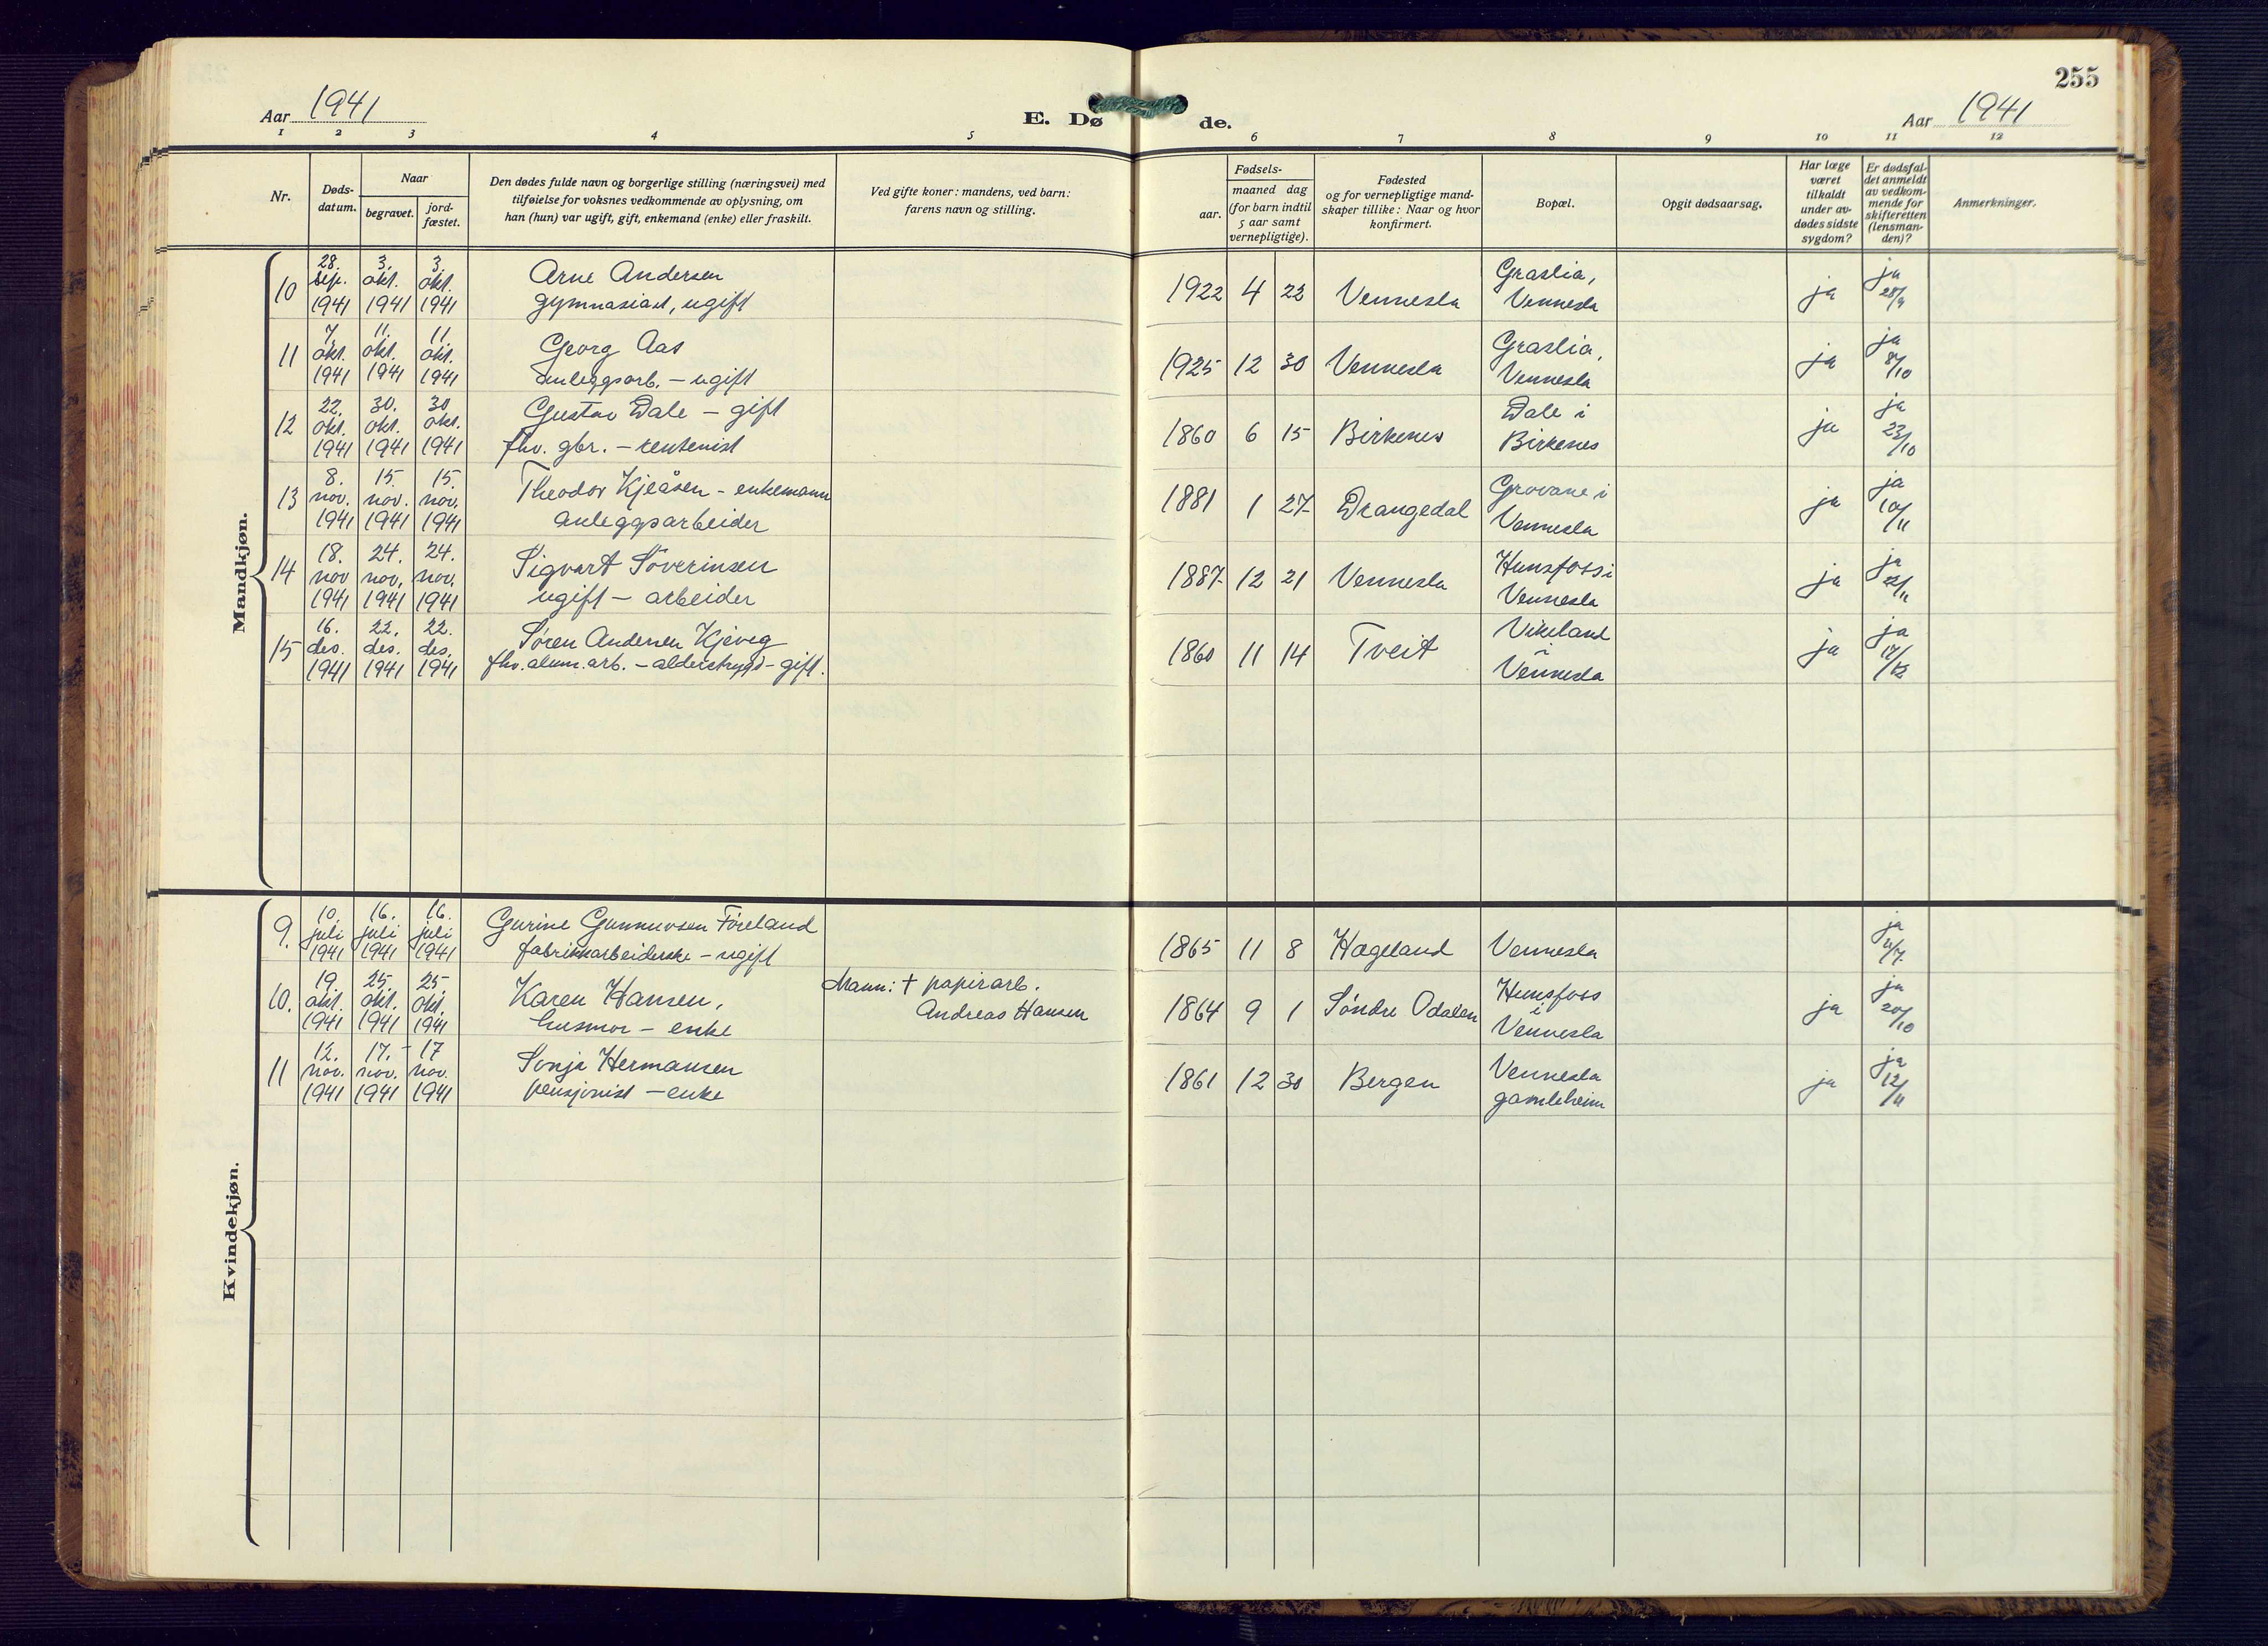 255
Aar 1941
E. Dø de.
Aar 1941
1 2 3 4 5 6 7 8 9 10 11 12
Nr.
Døds-
datum.
Naar
begravet.
jord-
fæstet.
Den dødes fulde navn og borgerlige stilling (næringsvei) med
tilføielse for voksnes vedkommende av oplysning, om
han (hun) var ugift, gift, enkemand (enke) eller fraskilt.
Ved gifte koner: mandens, ved barn:
farens navn og stilling.
Fødsels-
aar.
maaned dag
(for barn indtil
5 aar samt
vernepligtige).
Fødested
og for vernepligtige mand-
skaper tillike: Naar og hvor
konfirmert.
Bopæl.
Opgit dødsaarsag.
Har læge
været
tilkaldt
under av-
dødes sidste
sygdom?
Er dødsfal-
det anmeldt
av vedkom-
mende for
skifteretten
(lensman-
den)?
Anmerkninger.
Mandkjøn.
28. 3. 3.
10 sep. okt. okt. Arne Andersen Graslia, ja
1941 1941 1941 gymnasiast, ugift 1922 4 22 Vennesla Vennesla ja 28/9
7. 11. 11.
11 okt. okt. okt. Georg Aas Graslia, ja
1941 1941 1941 anleggsarb. – ugift 1925 12 30 Vennesla Vennesla ja 8/10
22. 30. 30
12 okt. okt. okt. Gustav Dale – gift Dale i ja
1941 1941 1941 fhv. gbr. – rentenist 1860 6 15 Birkenes Birkenes ja 23/10
8. 15. 15.
13 nov. nov. nov. Theodor Kjeåsen – enkemann Grovane i ja
1941 1941 1941 anleggsarbeider 1881 1 27 Drangedal Vennesla ja 10/11
18. 24. 24.
14 nov nov. nov. Sigvart Söverinsen Hunsfoss i ja
1941 1941 1941 ugift – arbeider 1887 12 21 Vennesla Vennesla ja 22/11
16. 22. 22.
15 des. des. des. Søren Andersen Kjeveg Vikeland i ja
1941 1941 1941 fhv. alum. arb. – alderstrygd – gift. 1860 11 14 Tveit Vennesla ja 17/12
Kvindekjøn.
10. 16. 16.
9. juli juli juli Gurine Gunnuvsen Föreland ja
1941 1941 1941 fabrikkarbeiderske – ugift 1865 11 8 Hægeland Vennesla 11/7
19. 25. 25.
10. okt. okt. okt. Karen Hansen, Mann: † papirarb. Hunsfoss i ja
1941 1941 1941 husmor – enke Andreas Hansen 1864 9 1 Söndre Odalen Vennesla ja 20/10
12. 17. – 17
11 nov. nov. nov. Sonja Hermansen Vennesla ja
1941 1941 1941 pensjonist – enke 1861 12 30 Bergen gamleheim ja 12/11